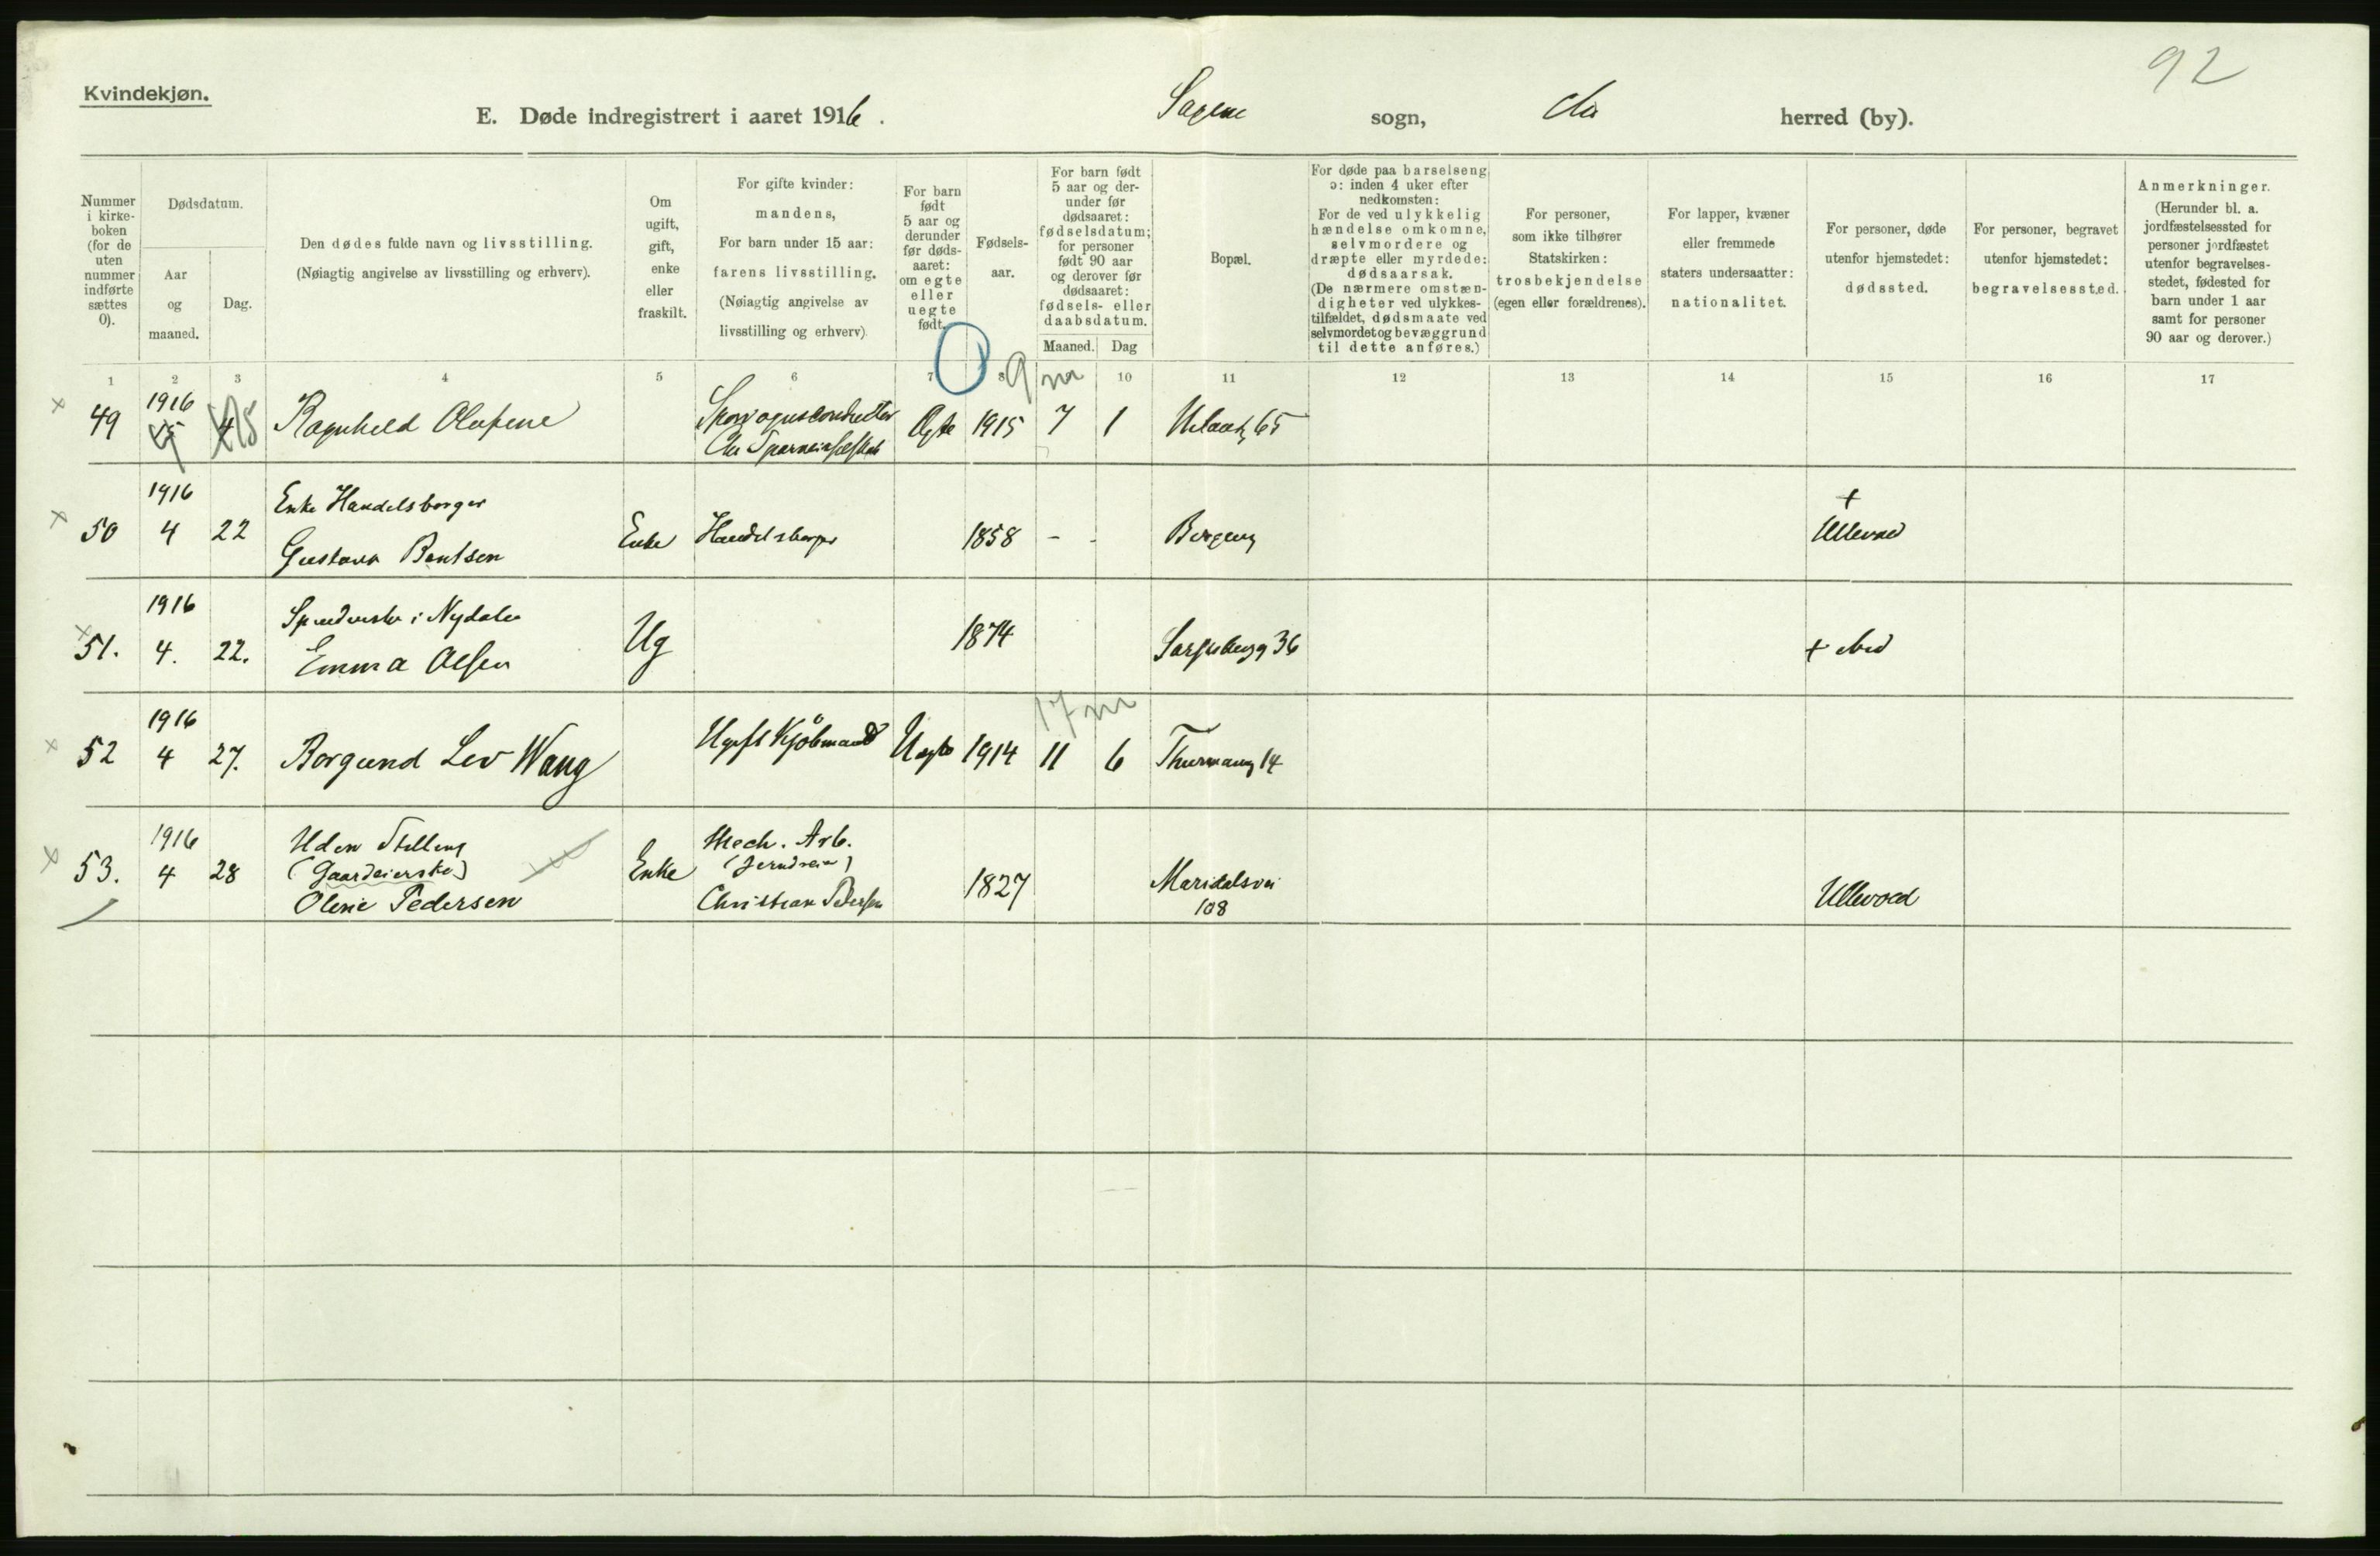 92
Kvindekjøn.
E. Døde indregistrert i aaret 1916. Sagene sogn, Kra herred (by).
Nummer i kirkeboken (for de uten nummer indførte sættes 0).
Dødsdatum.
Aar og maaned.
Dag.
Den dødes fulde navn og livsstilling.
(Nøiagtig angivelse av livsstilling og erhverv).
Om ugift, gift, enke eller fraskilt.
For gifte kvinder:
mandens,
For barn under 15 aar:
farens livsstilling.
(Nøiagtig angivelse av
livsstilling og erhverv)
For barn født 5 aar og derunder før dødsaaret: om egte eller uegte født.
Fødselsaar.
For barn født 5 aar og derunder før dødsaaret: fødselsdatum; for personer født 90 aar og derover før dødsaaret: fødsels- eller daabsdatum.
Maaned. Dag
Bopæl.
For døde paa barselseng ɔ: inden 4 uker efter nedkomsten:
For de ved ulykkelig hændelse omkomne, selvmordere og dræpte eller myrdede: dødsaarsak.
(De nærmere omstændigheter ved ulykkestilfældet, dødsmaate ved selvmordet og bevæggrund til dette anføres.)
For personer, som ikke tilhører Statskirken: trosbekjendelse (egen eller forældrenes).
For lapper, kvæner eller fremmede staters undersaatter: nationalitet.
For personer, døde utenfor hjemstedet: dødssted.
For personer, begravet utenfor hjemstedet: begravelsessted.
Anmerkninger.
(Herunder bl. a. jordfæstelsessted for personer jordfæstet utenfor begravelsesstedet, fødested for barn under 1 aar samt for personer 90 aar og derover.)
1 2 3 4 5 6 7 8 10 11 12 13 14 15 16 17
0 9 m
x 49 1916 4 15 Ragnhild Olafsene Sporvognsconductør Egte 1915 7 1 65
x 50 1916 4 22 Enke Handelsborger
Gustava Bentsen Enke Handelsborger 1858 - - + Ullevaal
x 51. 1916 4. 22. i Nydalen
Emma Olsen Ug 1874 Sarpsborgg 36 +
17 m
x 52 1916 4 27. Borgund Lev Wang Ugift Kjøbmand Uegte 1914 11 6 Thurmanng 14
x 53. 1916 4 28 Uden Stilling
(Gaardeierske)
Olene Pedersen Enke Mech. Arb.
Christian Pedersen 1827 Maridalsvei
108 Ullevaal